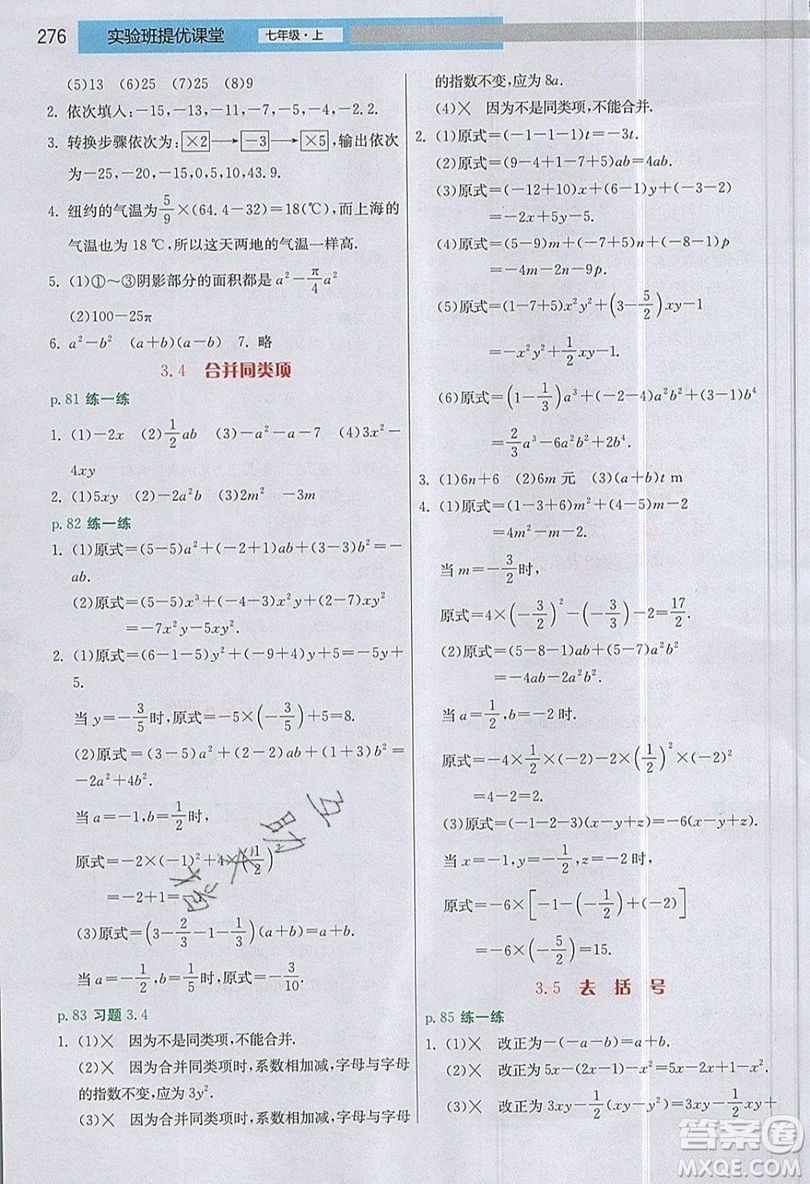 276 实验班提优课堂 七年级·上
(5)13 (6)25 (7)25 (8)9
2. 依次填入:-15,-13,-11,-5,-4,-2.2.
3. 转换步骤依次为:×2→-3→×5,输出依次
为-25,-20,-15,0,5,10,43.9.
4. 纽约的气温为5/9×(64.4-32)=18(℃),而上海的
气温也为18 ℃,所以这天两地的气温一样高.
5. (1)①~③阴影部分的面积都是a²-π/4a²
(2)100-25π
6. a²-b² (a+b)(a-b) 7. 略
3.4 合并同类项
p.81 练一练
1. (1)-2x (2)1/2ab (3)-a²-a-7 (4)3x²-
4xy
2. (1)5xy (2)-2a²b (3)2m² -3m
p.82 练一练
1. (1)原式=(5-5)a²+(-2+1)ab+(3-3)b²=-
ab.
(2)原式=(5-5)x³+(-3-4)x²y+(2-7)xy²
=-7x²y-5xy².
2. (1)原式=(6-1-5)y²+(-9+4)y+5=-5y+
5.
当y=-3/5时,原式=-5×(-3/5)+5=8.
(2)原式=(3-5)a²+(2-2)ab+(1+3)b²=
-2a²+4b².
当a=-1,b=1/2时,
原式=-2×(-1)²+4×(1/2)²
=-2+1=-1.
(3)原式=(3-2/3-1-1/3)(a+b)=a+b.
当a=-1/2,b=1/5时,原式=-3/10.
p.83 习题3.4
1. (1)× 因为不是同类项,不能合并.
(2)× 因为合并同类项时,系数相加减,字母与字母
的指数不变,应为3y².
(3)× 因为合并同类项时,系数相加减,字母与字母
的指数不变,应为8a.
(4)× 因为不是同类项,不能合并.
2. (1)原式=(-1-1-1)t=-3t.
(2)原式=(9-4+1-7+5)ab=4ab.
(3)原式=(-3+1)x+(6-1)y+(-2-5)
=-2x+5y-7.
(4)原式=(5-9)m+(-3+1)n+(-8-1)p
=-4m-2n-9p.
(5)原式=(-7+5+1)x²y²+(3-5/2)xy-1
=-x²y²+1/2xy-1.
(6)原式=(1-1/3)a³+(-2+4)a²b²+(1-1/2)b⁴
=2/3a³+2a²b²+1/2b⁴.
3. (1)6n+6 (2)6m元 (3)(a+b)t m
4. (1)原式=(1-3+6)m²+(5-4-2)m-2
=4m²-m-2.
当m=-3/2时,
原式=4×(-3/2)²-(-3/2)-2=17/2.
(2)原式=(5-8-1)ab+(-5+3)a²b
=-4ab-2a²b.
当a=1/2,b=-2时,
原式=-4×1/2×(-2)-2×(1/2)²×(-2)
=4-2×1/4×(-2)=5.
(3)原式=(-1-2-3)(x-y+z)=-6(x-y+z).
当x=-1/2,y=0,z=-2时,
原式=-6×[-1/2-0+(-2)]
=-6×(-5/2)=15.
3.5 去括号
p.85 练一练
1. (1)× 改正为-(-a-b)=a+b.
(2)× 改正为5x-(2x-1)-x²=5x-2x+1-x².
(3)× 改正为3xy-1/2(xy-y²)=3xy-1/2xy+
互助文档
答案圈
MXQE.COM